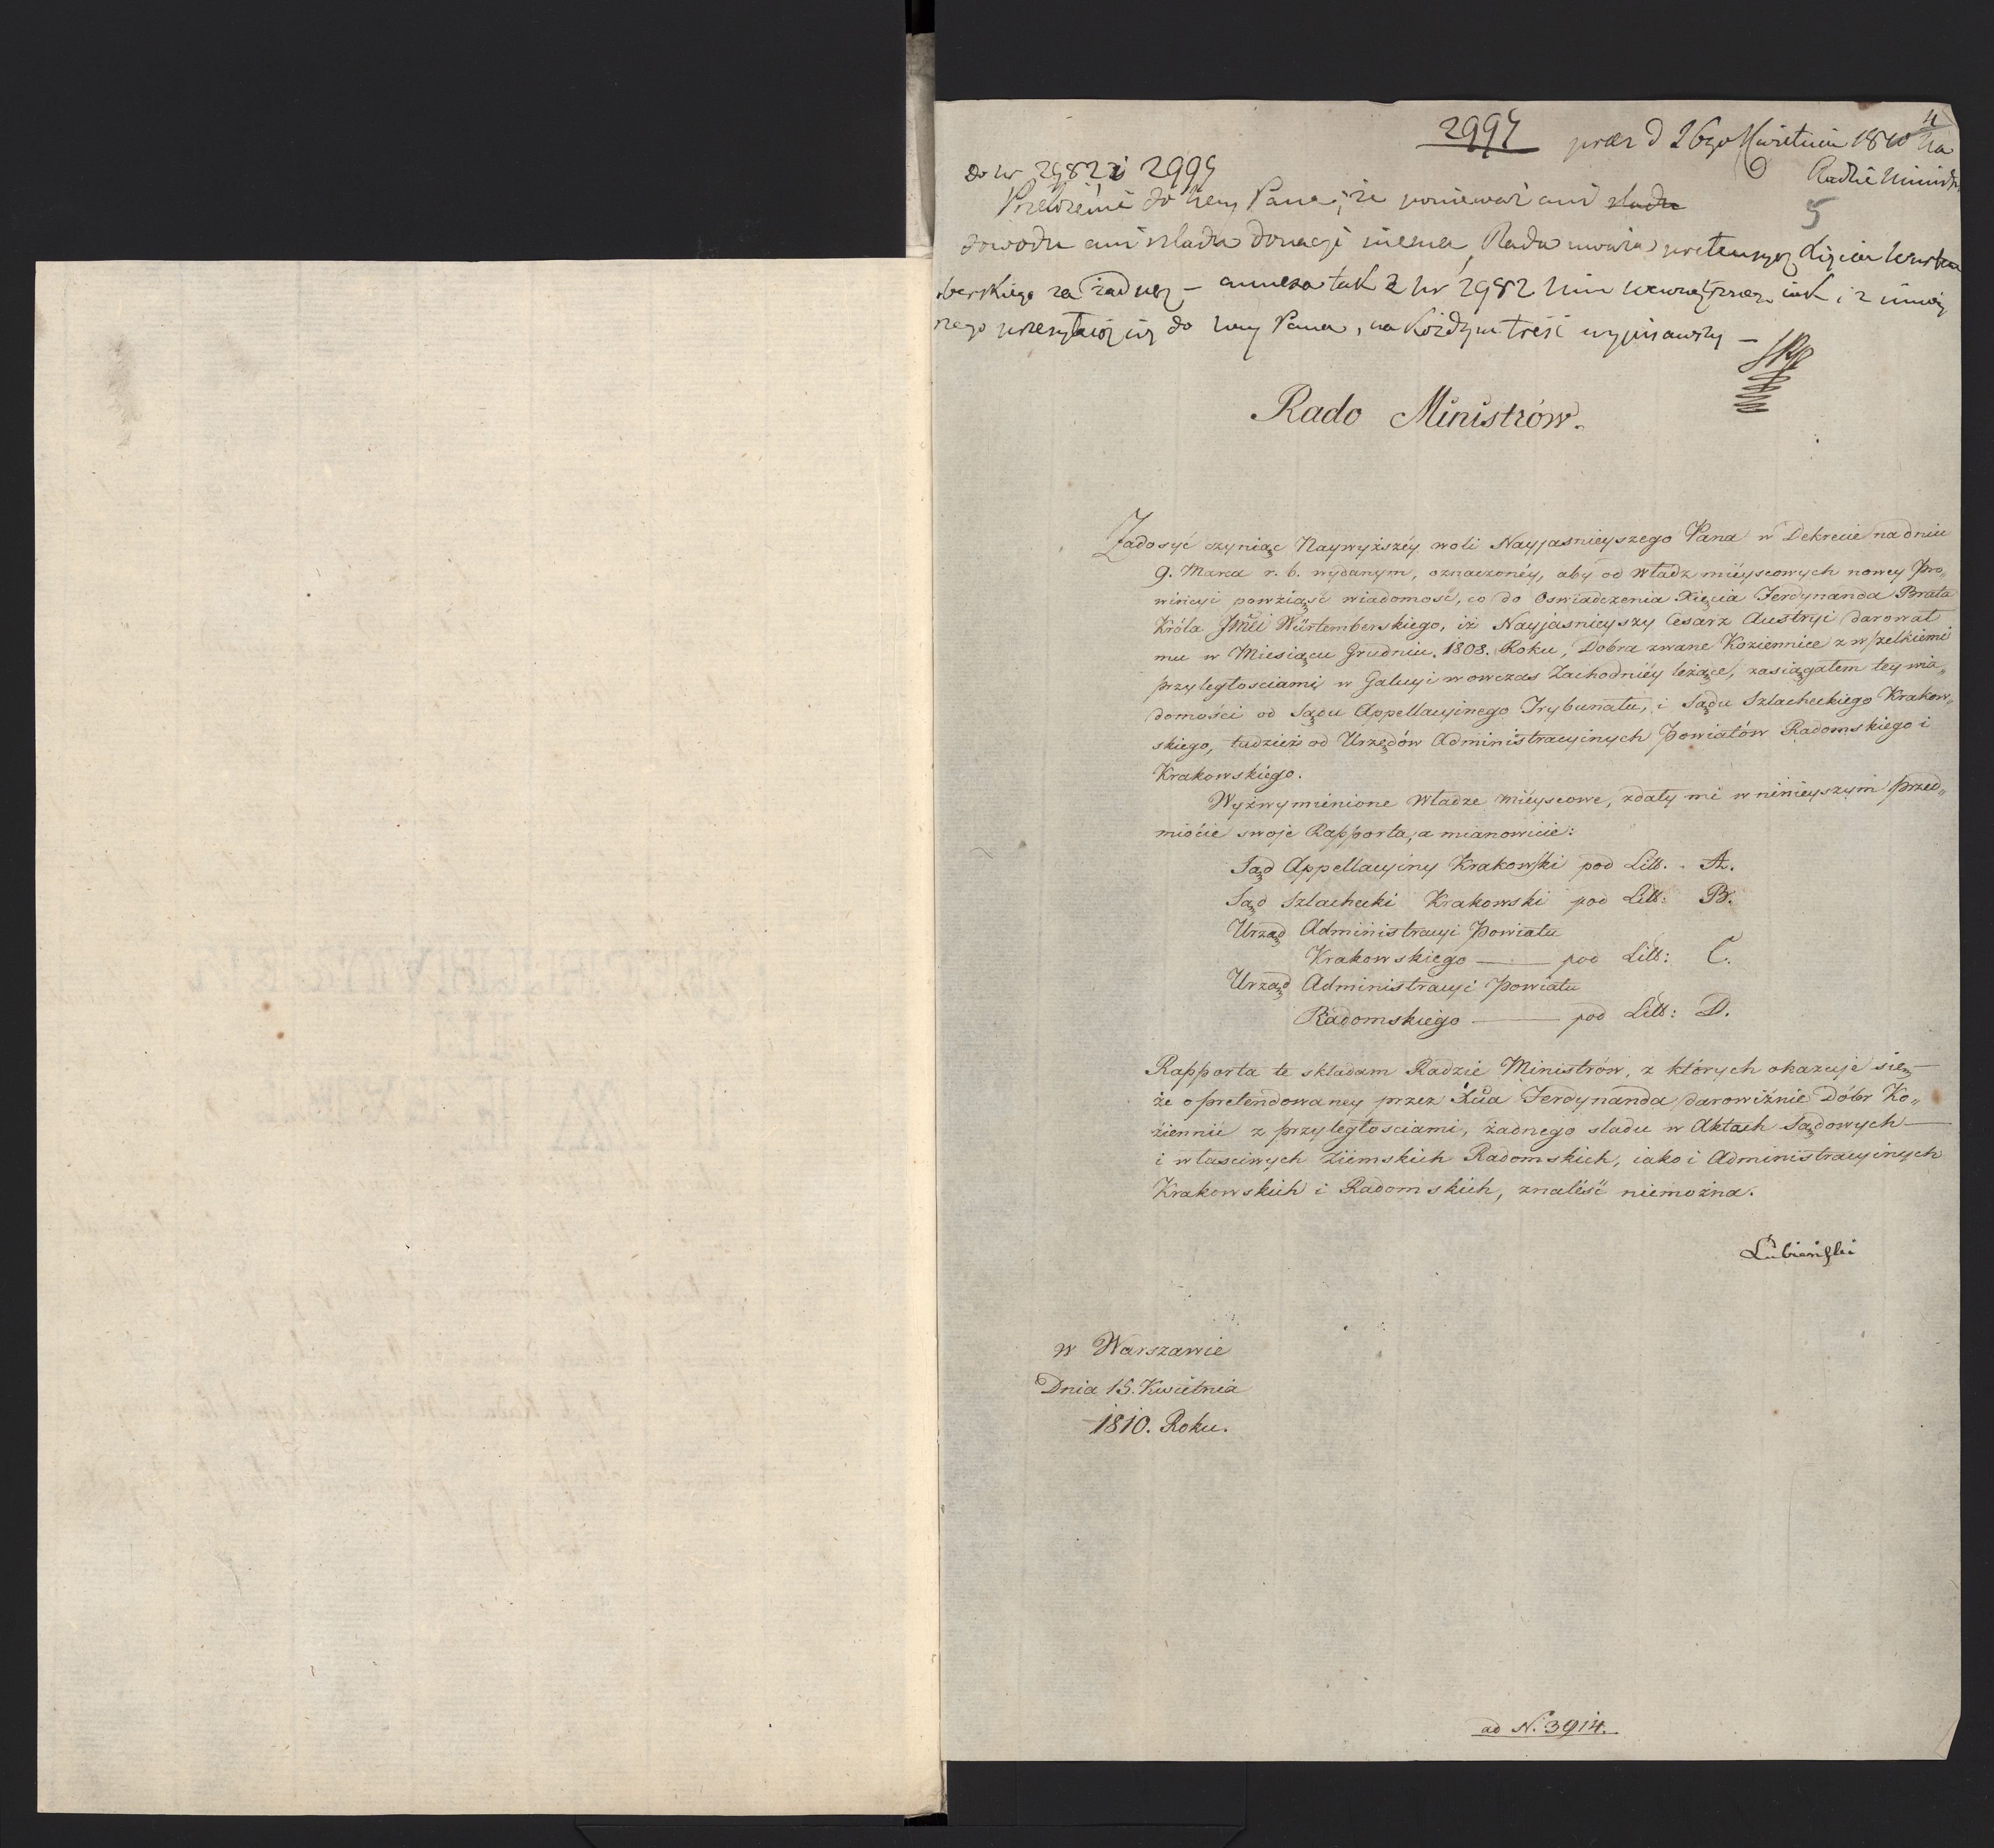 4
2994 prez d 26go Kwietnia 1810 na
Radzie Ministr.
5
do nr 2982 i 2994
Przełożenie do Nay Pana, że ponieważ ani sladu
dowodu ani sladu donacyi niema, Rada uważa pretensyę Xięcia Wurtem
berskiego za żadną – annexa tak z nr 2982 Min Wewnętrzneg iak i z niniey
szego przesyłaią się do Nay Pana, na każdym treść wypisawszy –
Rado Ministrów.
Zadosyć czyniąc Naywyższéy woli Nayjasnieyszego Pana w Dekrecie na dniu
9. Marca r. b. wydanym, oznaczonéy, aby od Władz mieyscowych nowey Pro„
wincyi powziąść wiadomość, co do Oswiadczenia Xięcia Ferdynanda Brata
Króla Jmći Würtemberskiego, iż Nayjasnieyszy Cesarz Austryi darował
mu w Miesiącu Grudniu. 1808. Roku, Dobra zwane Koziennice z wszelkiemi
przyległosciami w Galicyi wowczas Zachodniéy leżące, zasiągałem tey wia„
domości od Sądu Appellacyinego Trybunału, i Sądu Szlacheckiego Krakow„
skiego, tudzież od Urzędów Administracyinych Powiatów Radomskiego i
Krakowskiego.
Wyżwymienione Władze mieyscowe, zdały mi w ninieyszym przed„
miocie swoje Rapporta, a mianowicie:
Sąd Appellacyiny Krakowski pod Litt. A.
Sąd Szlachecki Krakowski pod Litt: B.
Urząd Administracyi Powiatu
Krakowskiego —— pod Litt: C.
Urząd Administracyi Powiatu
Radomskiego —— pod Litt: D.
Rapporta te składam Radzie Ministrów, z których okazuje się —
że o pretendowaney przez Xcia Ferdynanda darowiźnie Dóbr Ko„
ziennic z przyległosciami, żadnego sladu w Aktach Sądowych —
i własciwych Ziemskich Radomskich, iako i Administracyinych
Krakowskich i Radomskich, znaléść niemożna.
Łubieński
w Warszawie
Dnia 15. Kwietnia
1810. Roku.
ad N. 3914.